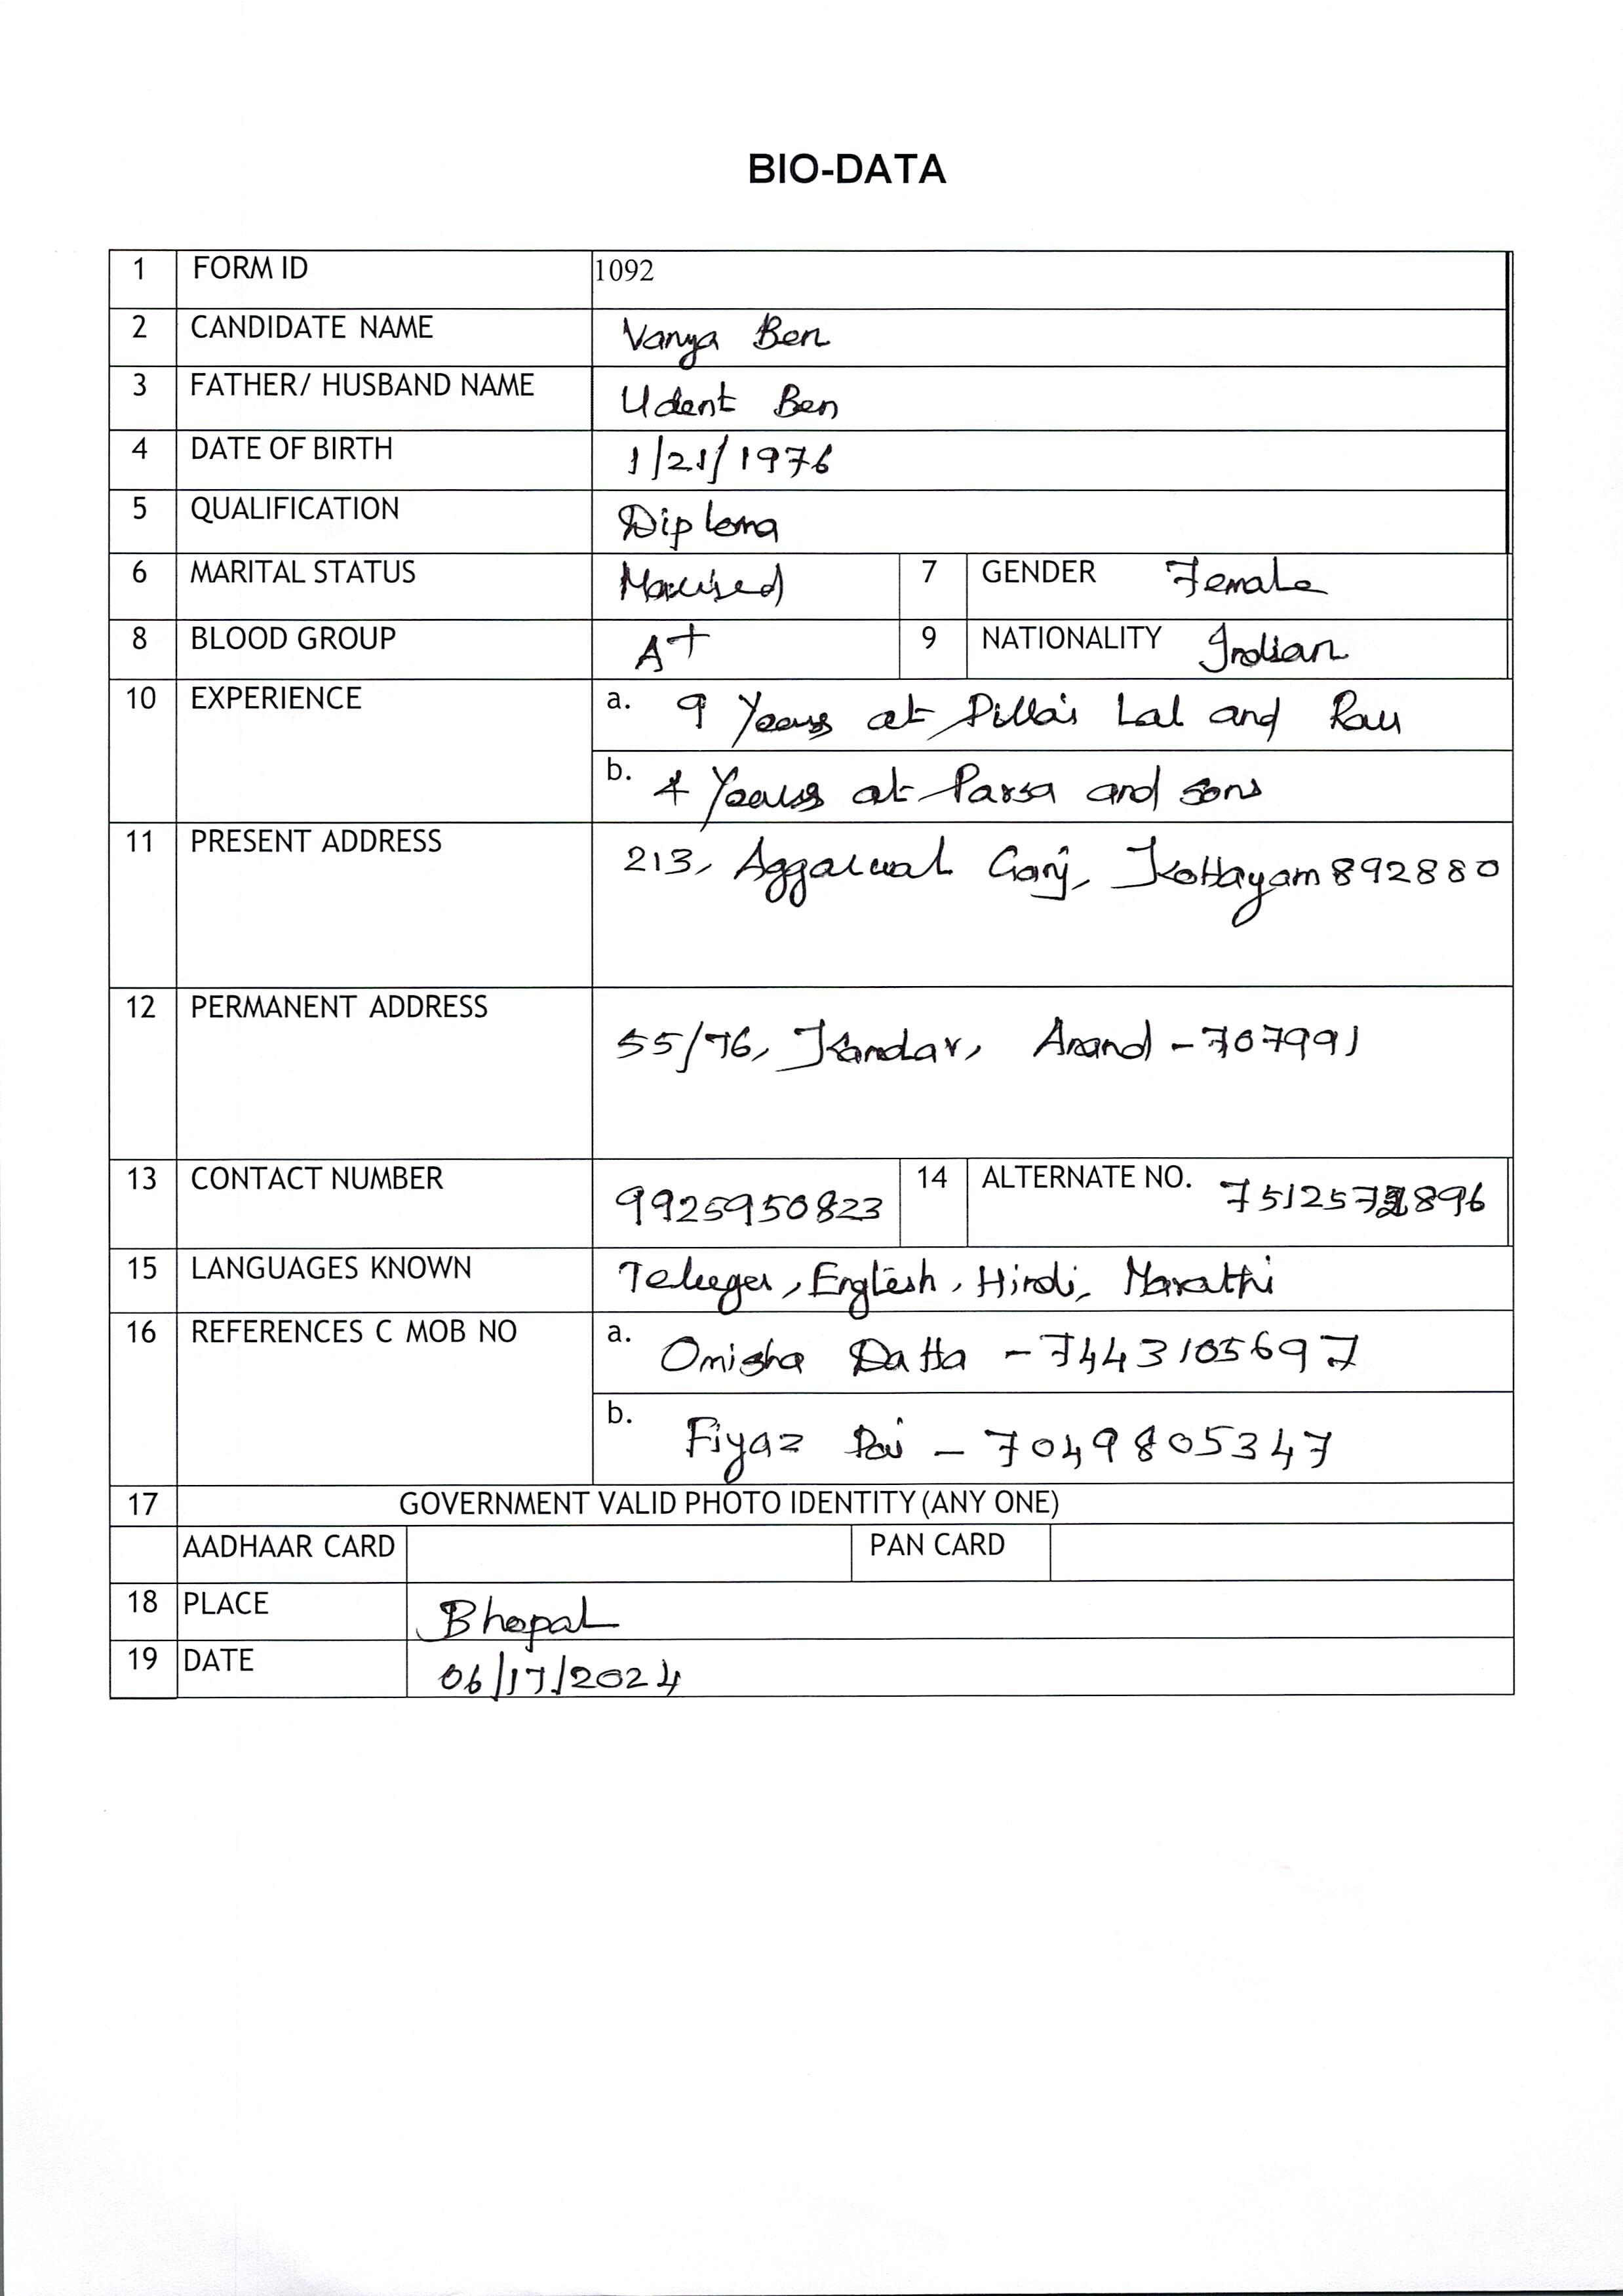 BIO-DATA
1 FORM ID 1092
2 CANDIDATE NAME Vanya Ben
3 FATHER/ HUSBAND NAME Udant Ben
4 DATE OF BIRTH 1/21/1976
5 QUALIFICATION Diploma
6 MARITAL STATUS Married 7 GENDER Female
8 BLOOD GROUP A+ 9 NATIONALITY Indian
10 EXPERIENCE a. 9 Years at Pillai Lal and
b. 4 Years at Parsa and sons
11 PRESENT ADDRESS 213, Aggarwal Ganj, Kottayam 892880
12 PERMANENT ADDRESS 55/76, Kandar, Anand - 707991
13 CONTACT NUMBER 9925950823 14 ALTERNATE NO.
15 LANGUAGES KNOWN Telugu, English, Hindi, Marathi
16 REFERENCES C MOB NO a. Onisha Datta - 7443105697
b. Fiyaz Pai - 7049805347
17 GOVERNMENT VALID PHOTO IDENTITY (ANY ONE)
AADHAAR CARD PAN CARD
18 PLACE Bhopal
19 DATE 06/17/2024